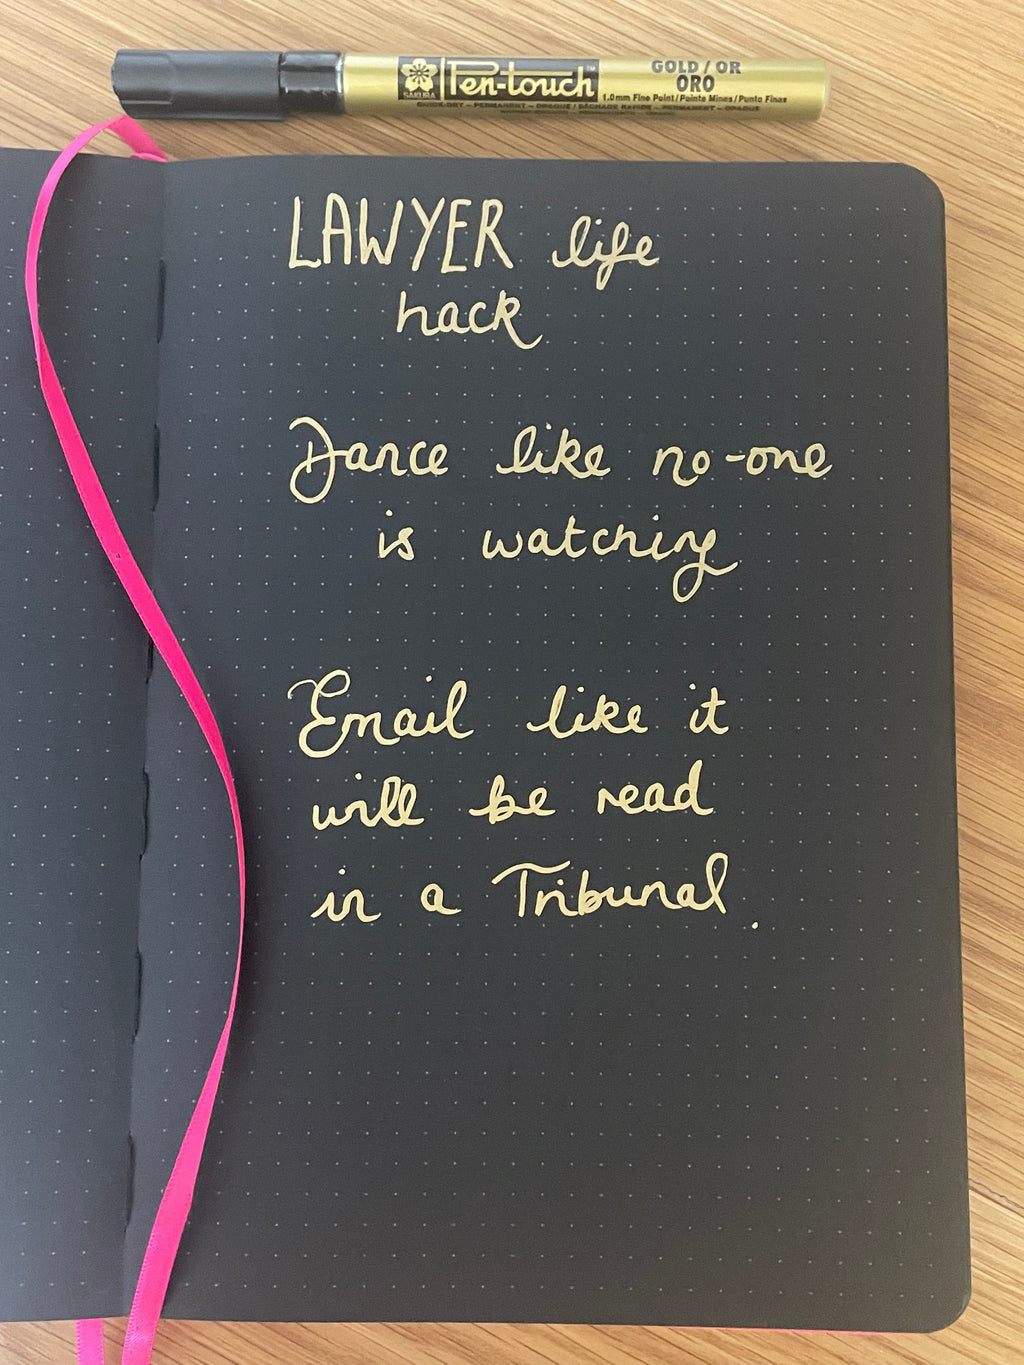 SAKURA
Pen-touch™
GOLD / OR
ORO
1.0mm Fine Point/Pointe Mines/Punto Finas
QUICK-DRY – PERMANENT – OPAQUE / SÉCHAGE RAPIDE – PERMANENT – OPAQUE
LAWYER life
hack
Dance like no-one
is watching
Email like it
will be read
in a Tribunal.